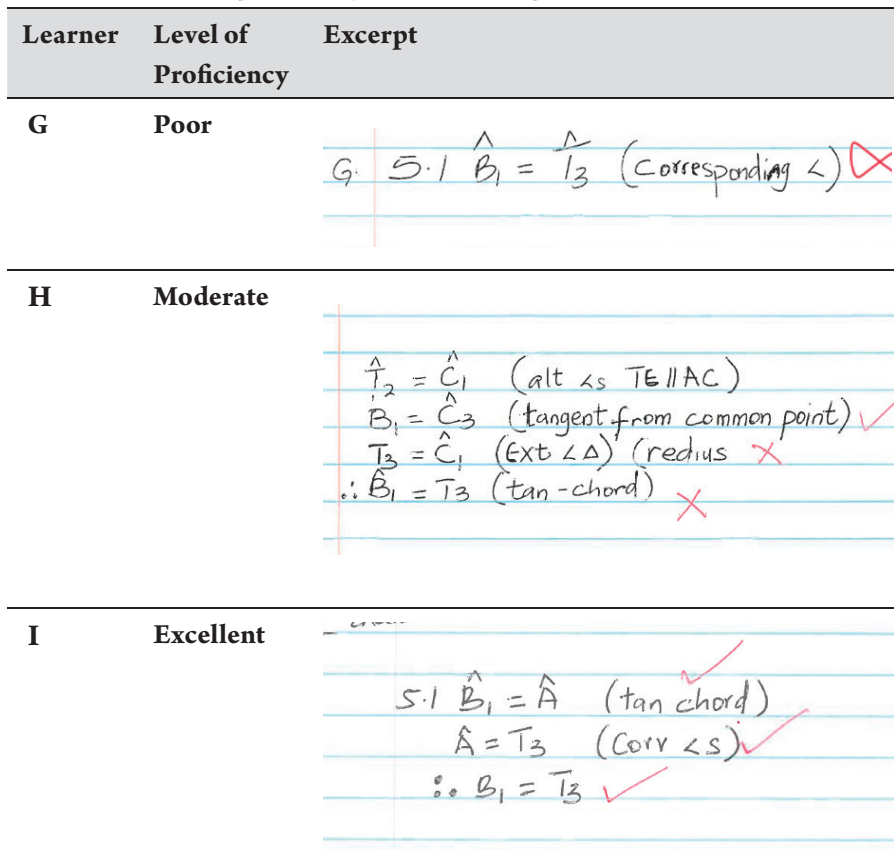 Learner Level of Proficiency Excerpt
G Poor
G. 5.1 B̂₁ = T̂₃ (Corresponding <)
H Moderate
T̂₂ = Ĉ₁ (alt <s TE || AC)
B̂₁ = Ĉ₃ (tangent from common point)
T₃ = Ĉ₁ (Ext < Δ) (redius
∴ B̂₁ = T₃ (tan-chord)
I Excellent
5.1 B̂₁ = Â (tan chord)
Â = T₃ (Corr <s)
∴ B₁ = T₃